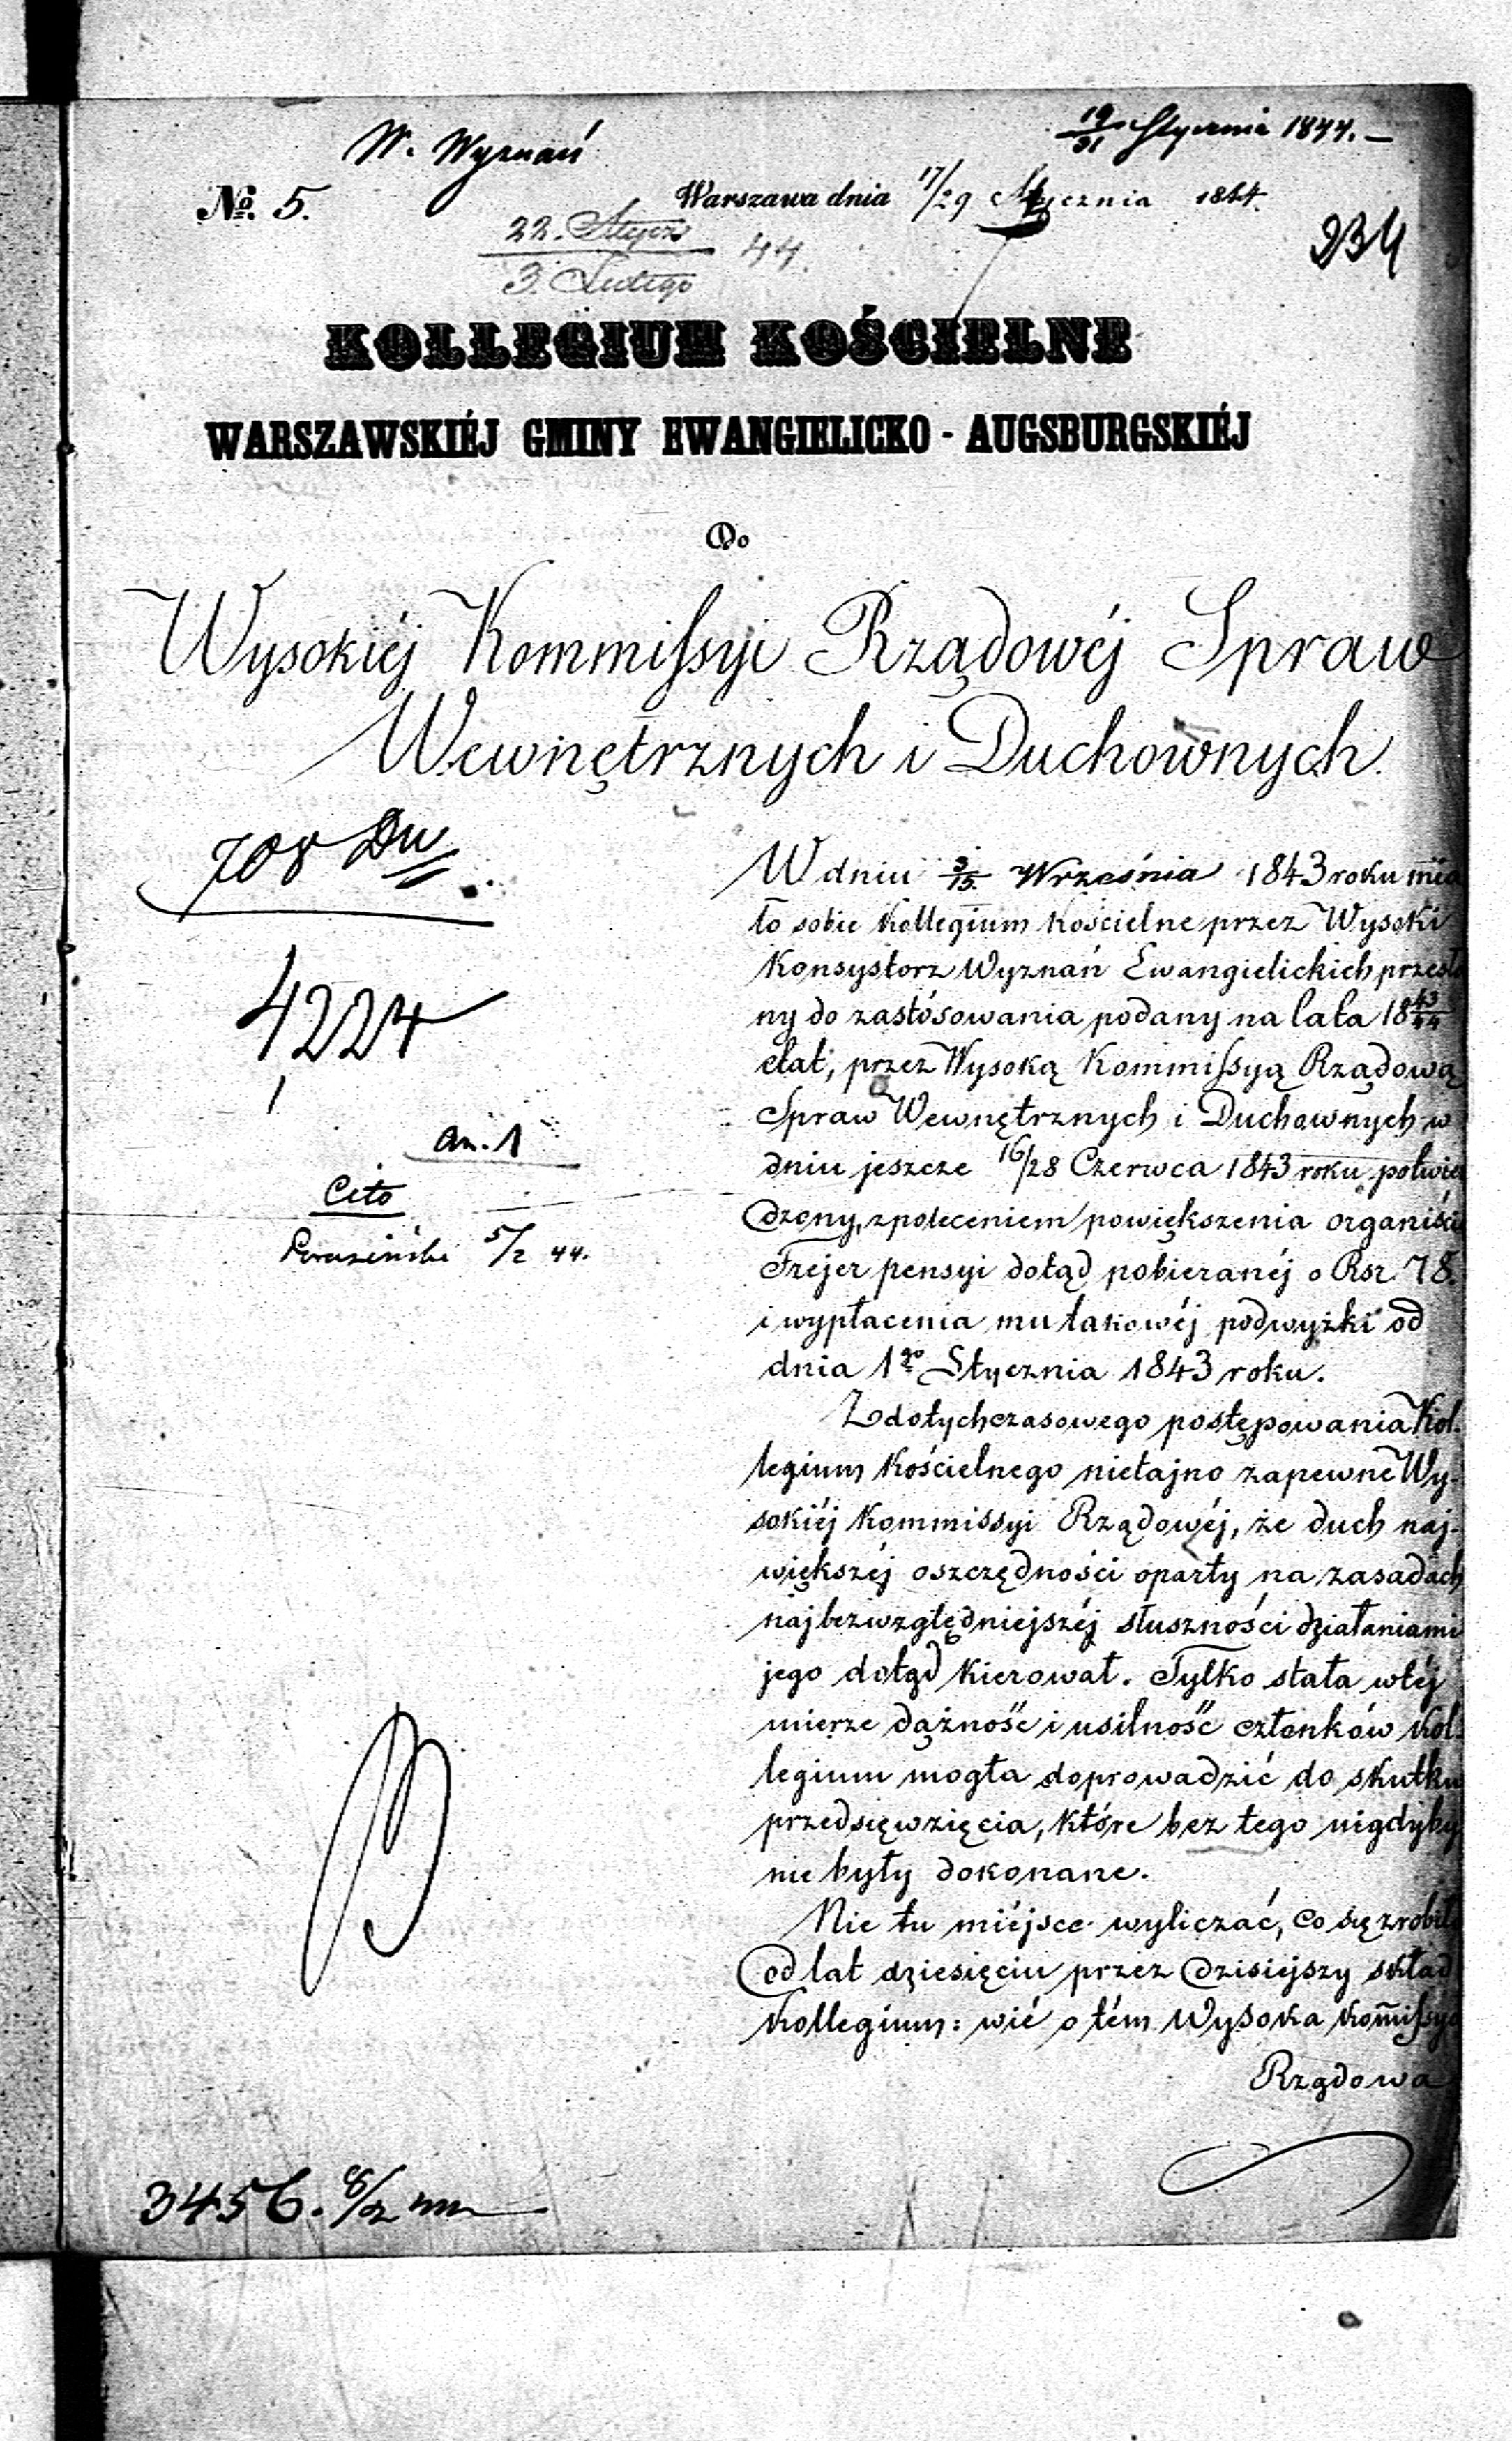 W. Wyznań
19/31 Stycznia 1844. –
No. 5.
Warszawa dnia 17/29 Stycznia 1844.
234
22. Stycz
3. Lutego 44.
KOLLEGIUM KOŚCIELNE
WARSZAWSKIÉJ GMINY EWANGIELICKO - AUGSBURGSKIÉJ
Do
Wysokiéj Kommissyi Rządowéj Spraw
Wewnętrznych i Duchownych.
708 Dw
4224
an. 1
Cito
5/2 44.
W dniu 3/15 Września 1843 roku mia
ło sobie Kollegium Kościelne przez Wysoki
Konsystorz Wyznań Ewangielickich przesła
ny do zastósowania podany na lata 18 43/44
etat, przez Wysoką Kommissyą Rządową
Spraw Wewnętrznych i Duchownych w
dniu jeszcze 16/28 Czerwca 1843 roku potwier
dzony, z poleceniem powiększenia organiście
Frejer pensyi dotąd pobieranéj o Rsr. 78.
i wypłacenia mu takowéj podwyżki od
dnia 1go Stycznia 1843 roku.
Z dotychczasowego postępowania Kol-
legium Kościelnego nietajno zapewne Wy-
sokiéj Kommissyi Rządowéj, że duch naj-
większéj oszczędności oparty na zasadach
najbezwzględniejszéj słuszności działaniami
jego dotąd kierował. Tylko stała w téj
mierze dążność i usilność członków Kol-
legium mogła doprowadzić do skutku
przedsięwzięcia, które bez tego nigdyby
nie były dokonane.
Nie tu miéjsce wyliczać, co się zrobiło
od lat dziesięciu przez dzisiejszy skład
Kollegium: wié o tém Wysoka Kom̄issya
Rządowa
3456. 8/2